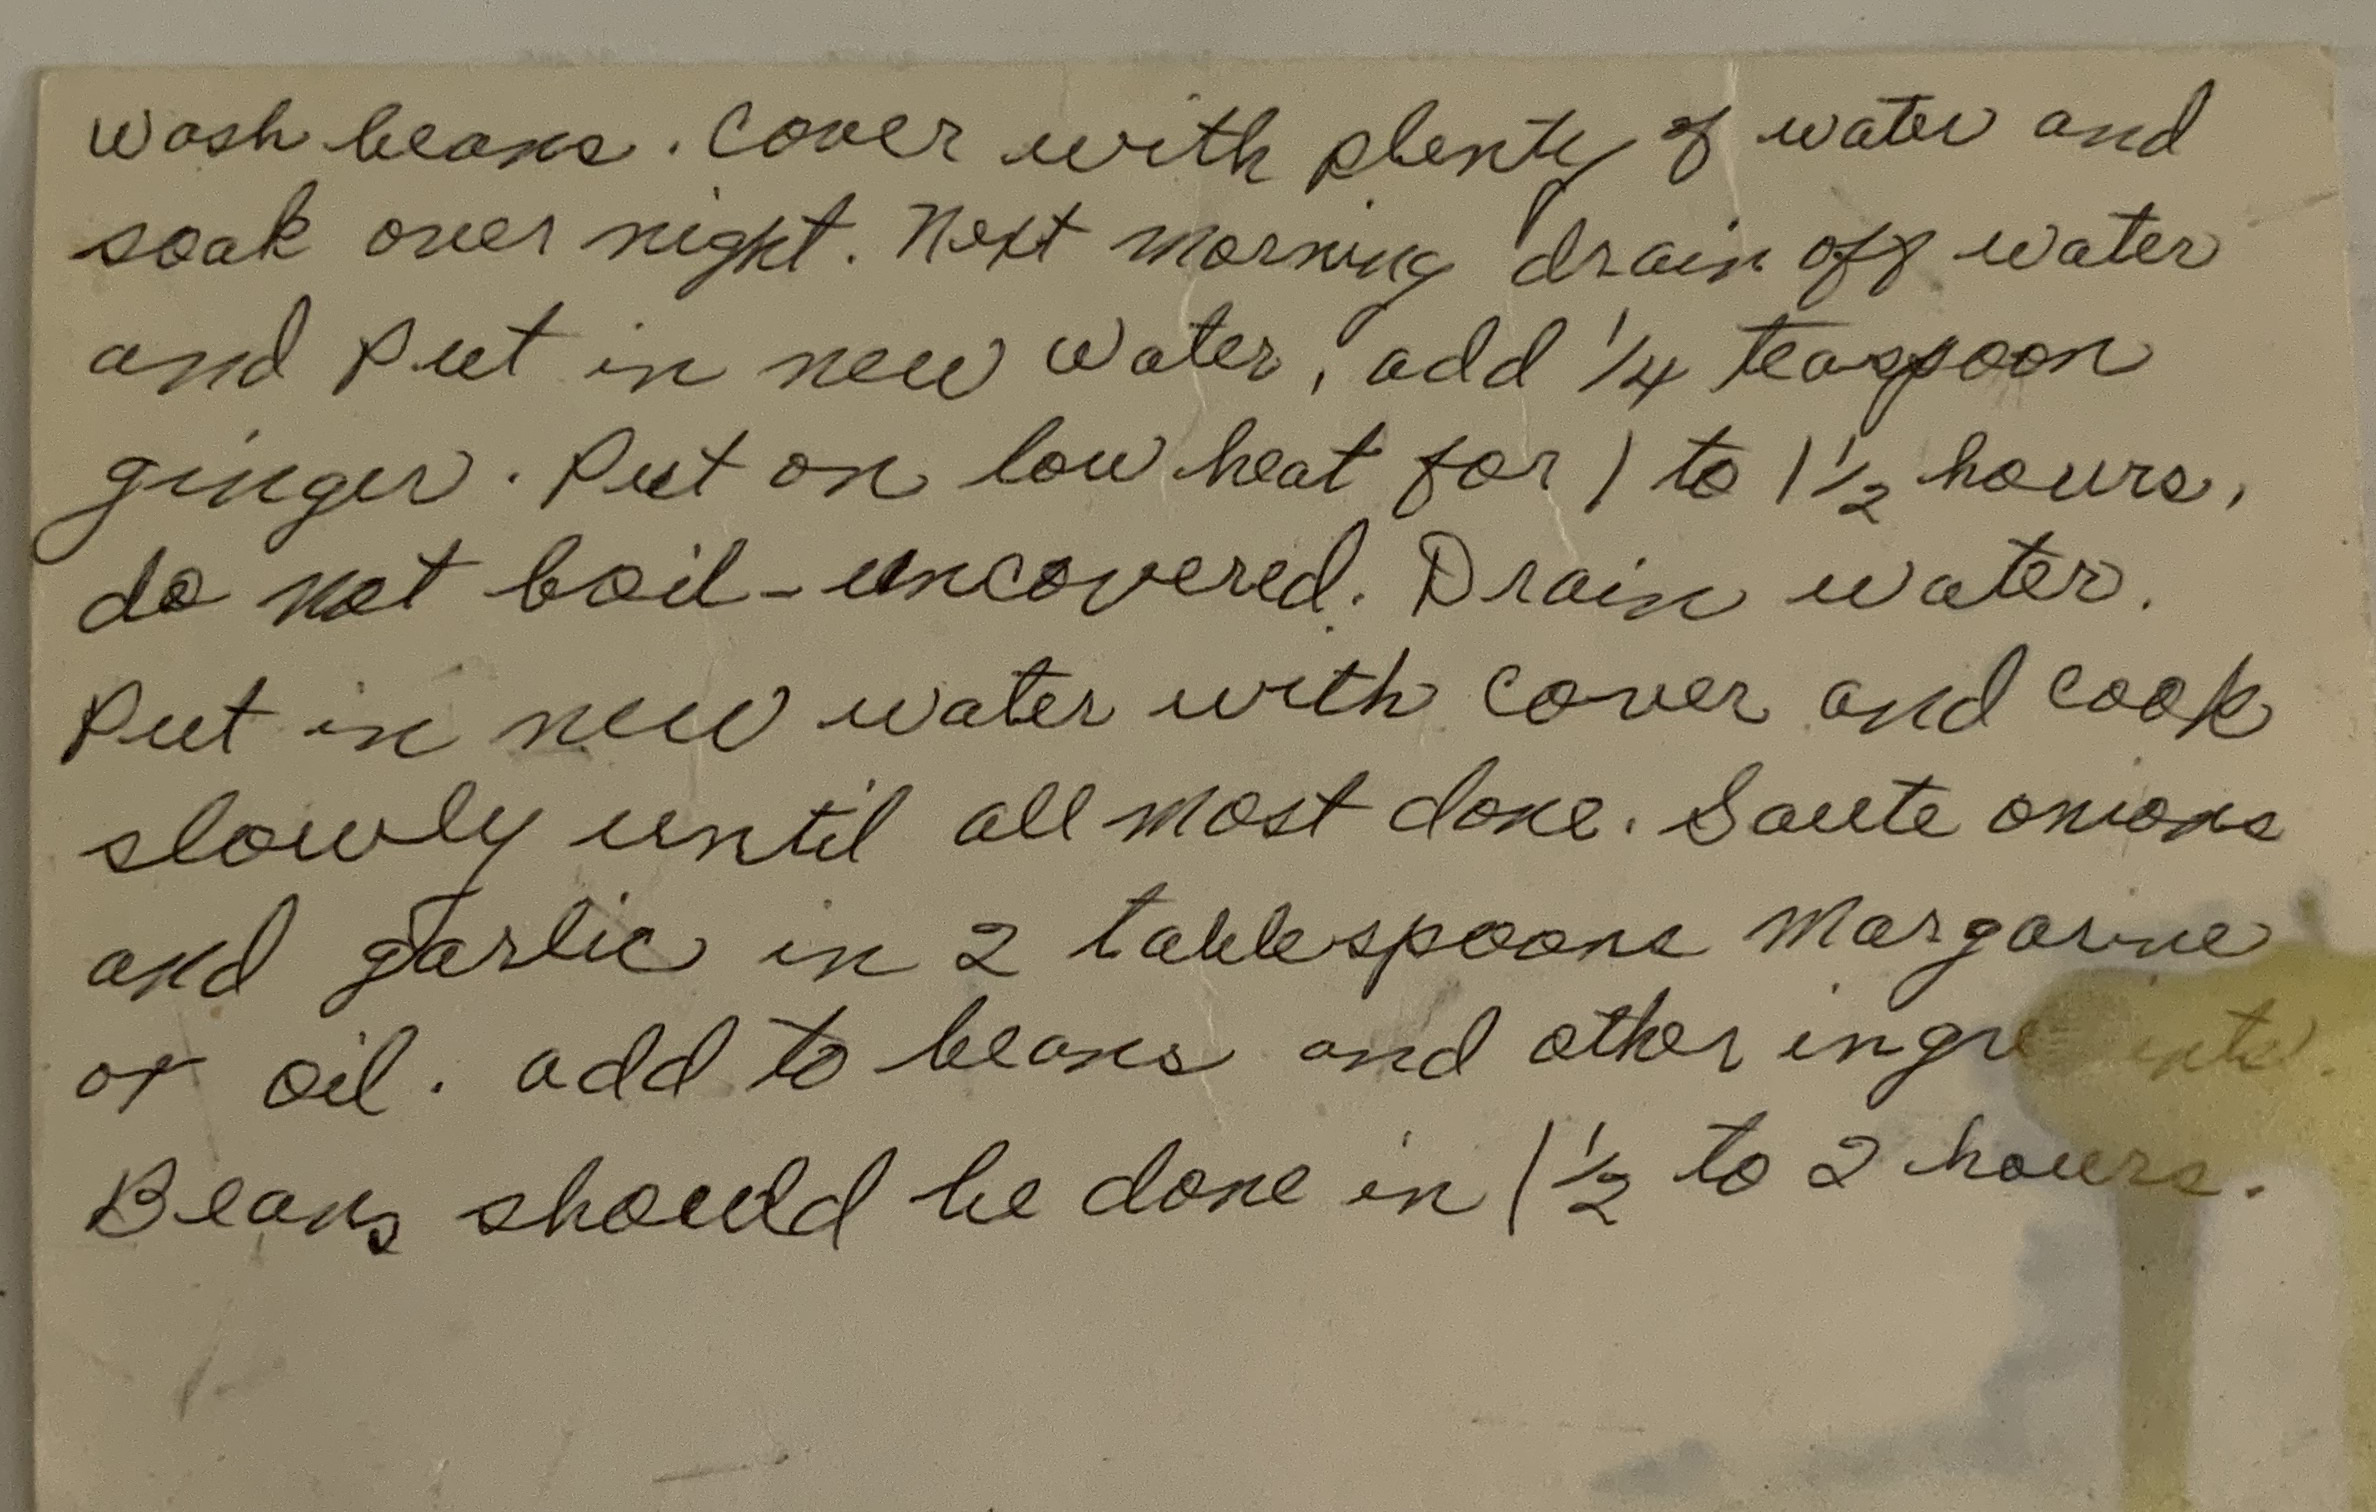 Wash beans. Cover with plenty of water and
soak over night. Next morning drain off water
and Put in new water, add 1/4 teaspoon
ginger. Put on low heat for 1 to 1 1/2 hours,
do not boil - uncovered. Drain water.
Put in new water with cover and cook
slowly until all most done. Saute onions
and garlic in 2 tablespoons Margarine
or oil. add to beans and other
Beans should be done in 1 1/2 to 2 hours.